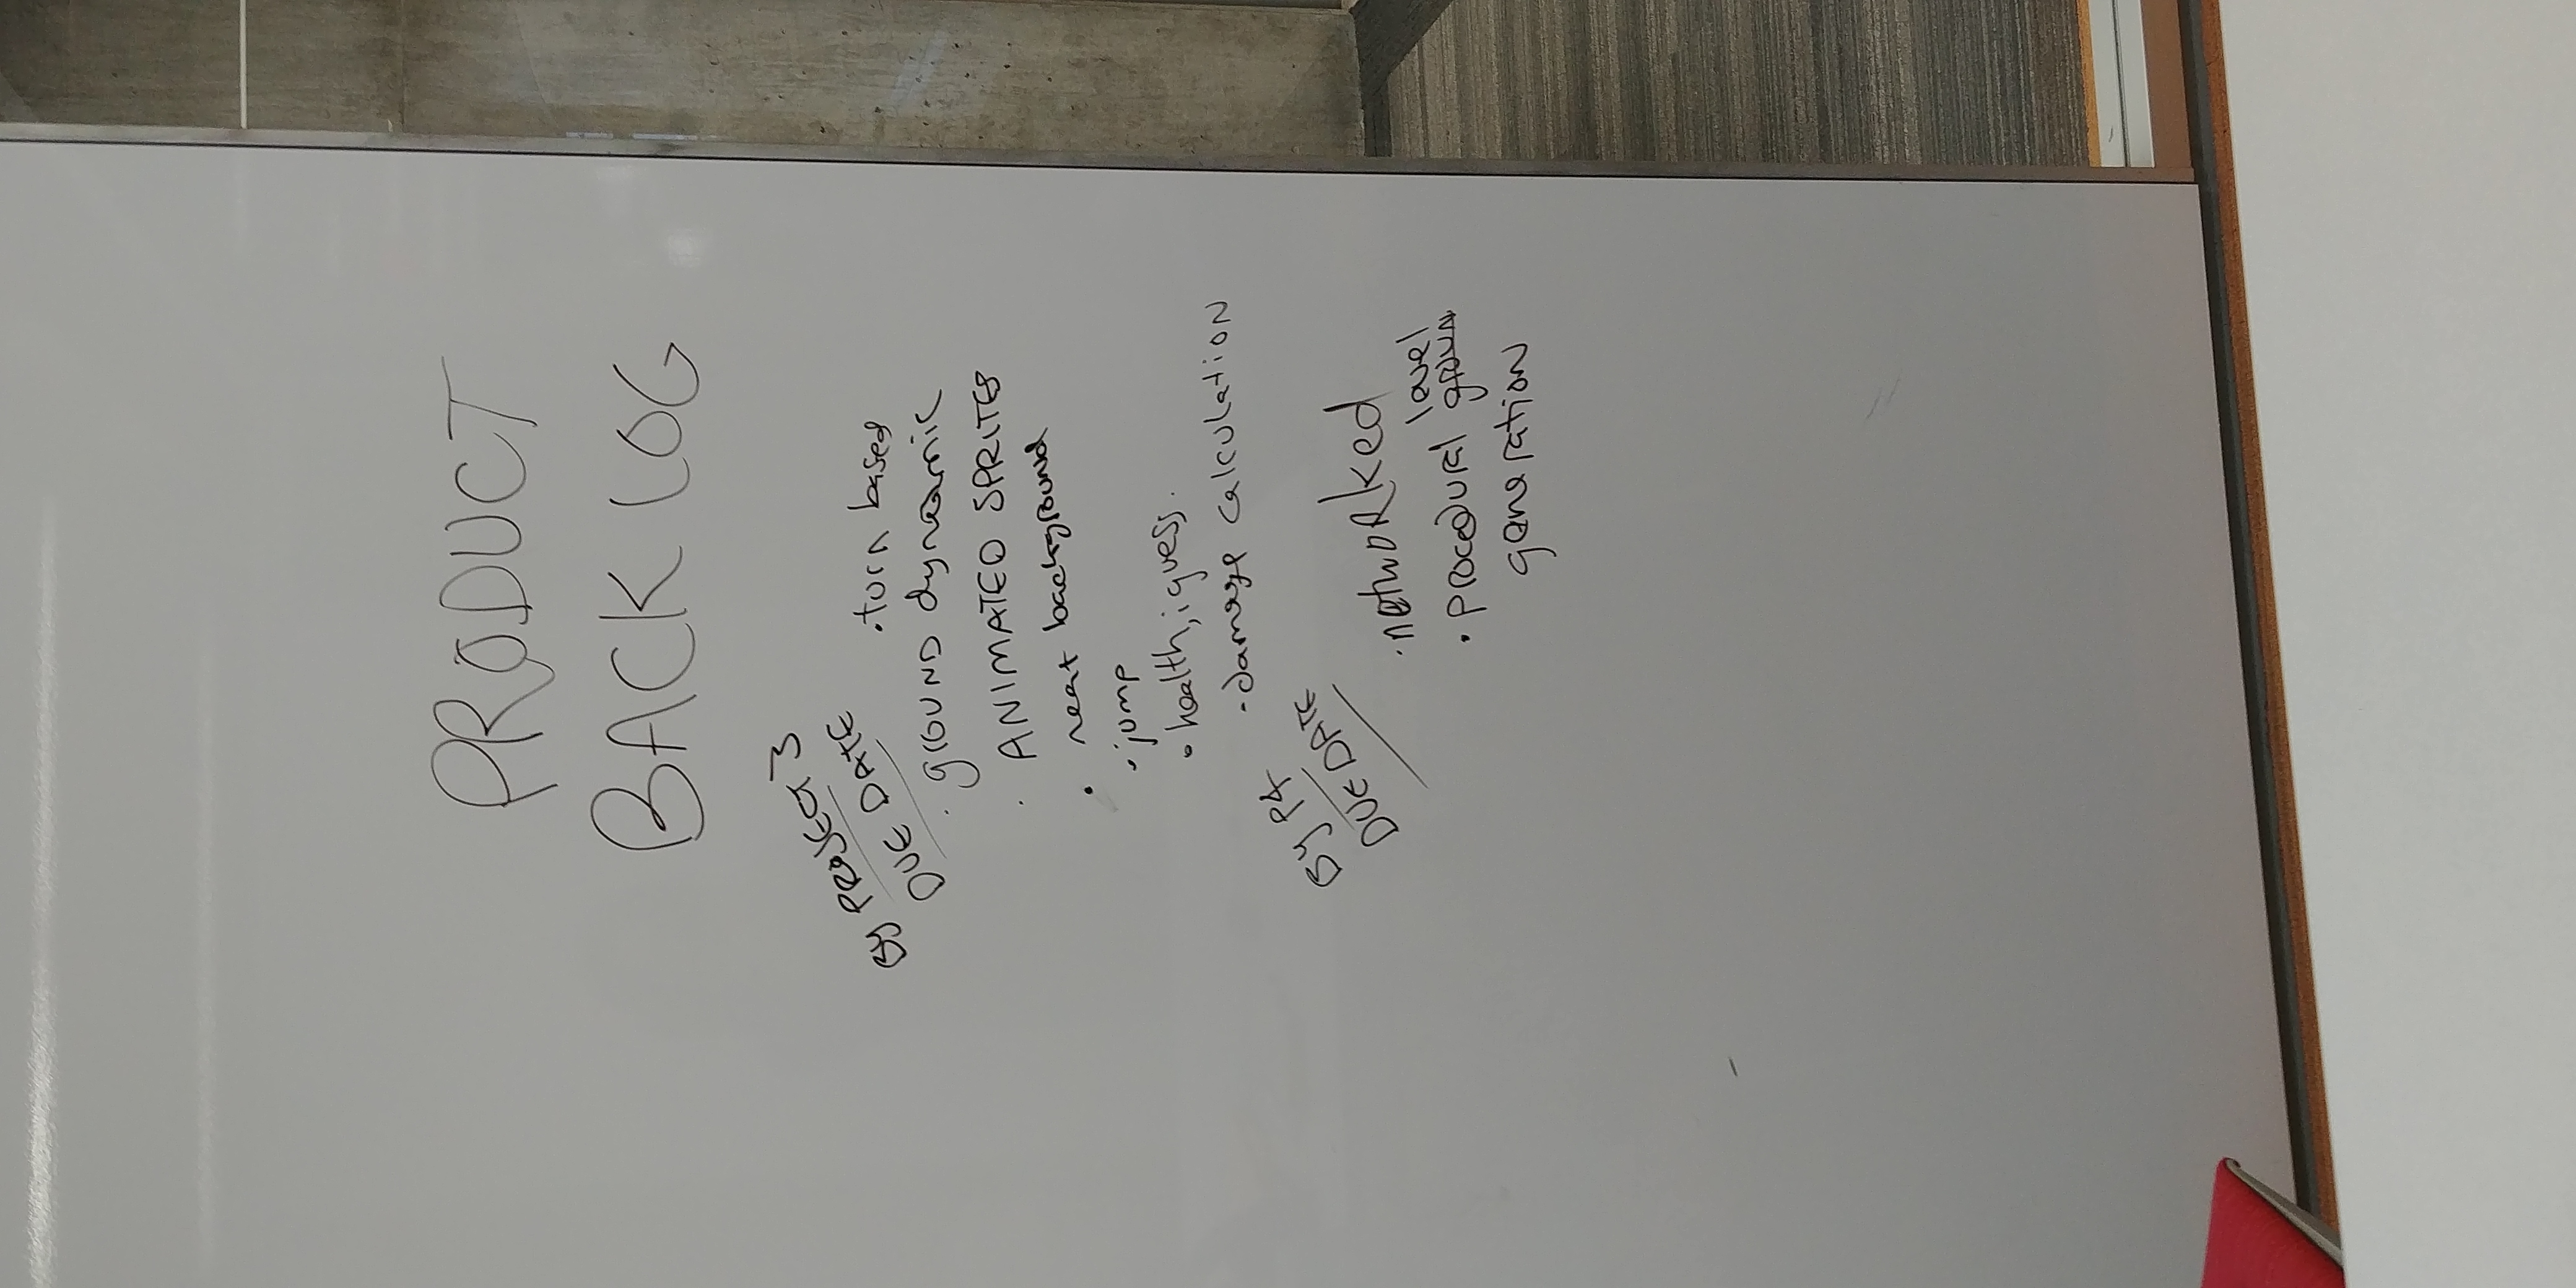 PRODUCT
BACK LOG
BY PROJECT 3
DUE DATE
· turn based
· GROUND dynamic
· ANIMATED SPRITES
· neat background
· jump
· health, i guess.
- damage calculation
BY P4
DUE DATE
· netwoRked
· procedural level
generation